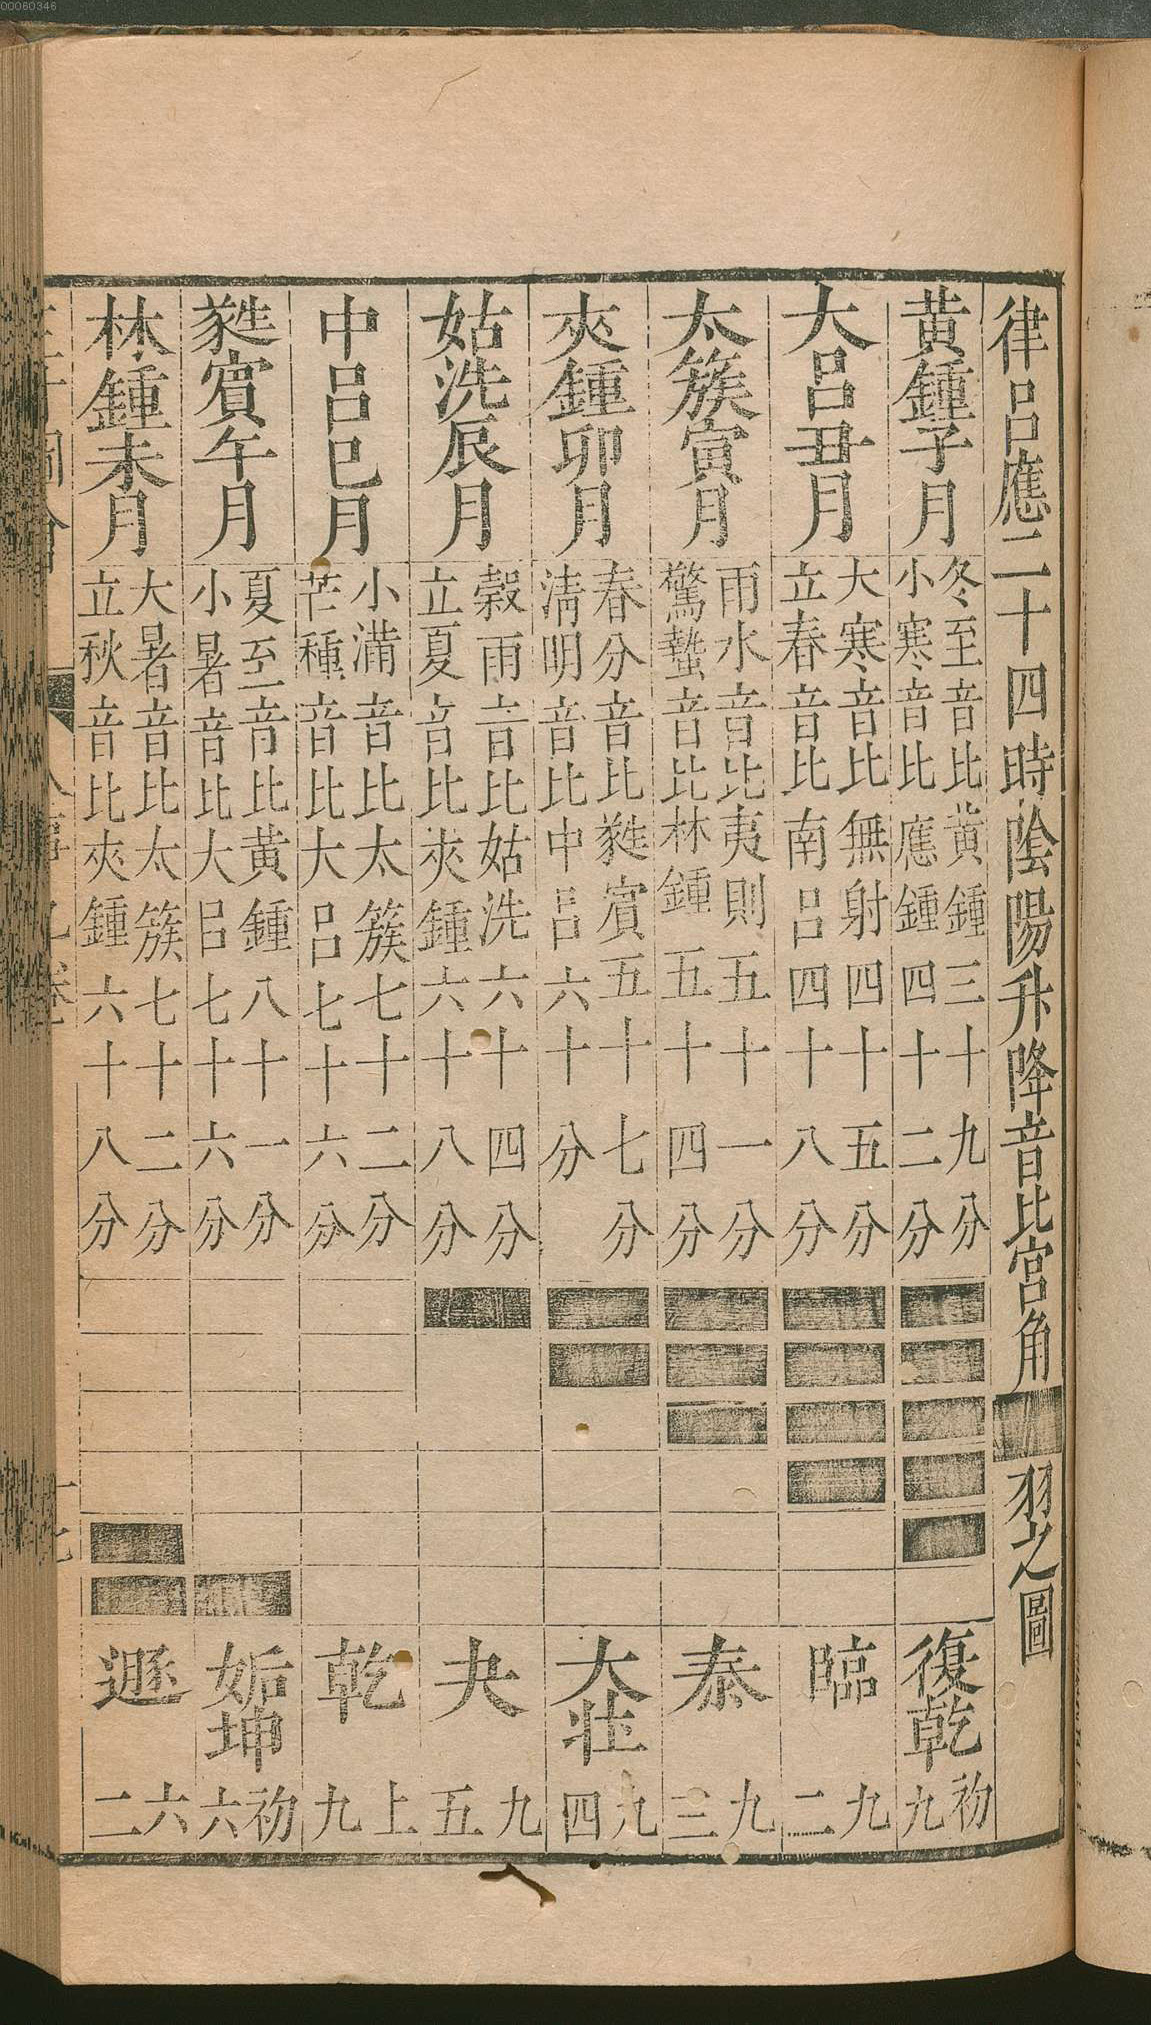 00060346
律呂應二十四時陰陽升降音比宮角羽之圖
黃鍾子月
冬至音比黃鍾三十九分
小寒音比應鍾四十二分
復乾
初九
大呂丑月
大寒音比無射四十五分
立春音比南呂四十八分
臨
九二
太簇寅月
雨水音比夷則五十一分
驚蟄音比林鍾五十四分
泰
九三
夾鍾卯月
春分音比蕤賓五十七分
清明音比中呂六十分
大壯
九四
姑洗辰月
穀雨音比姑洗六十四分
立夏音比夾鍾六十八分
夬
九五
中呂巳月
小滿音比太簇七十二分
芒種音比大呂七十六分
乾
上九
蕤賓午月
夏至音比黃鍾八十一分
小暑音比大呂七十六分
姤坤
初六
林鍾未月
大暑音比太簇七十二分
立秋音比夾鍾六十八分
遯
六二